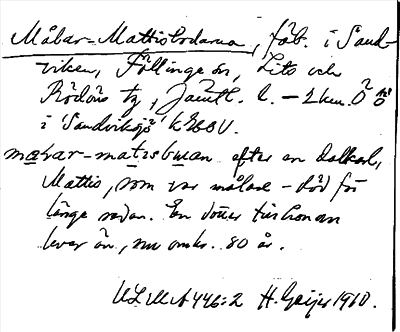 Målar-Mattisbodarna, fäb. i Sand-
viken, Föllinge sn, Lits och
Rödöns tg, Jämtl. l. – 2 km. Ö
i Sandviksjö
målar-matisbuan efter en dalkarl,
Mattis, som var målare – död för
länge sedan. En dotter till honom
lever än, nu omkr. 80 år.
ULMA 446:2 H. Geijer 1910.